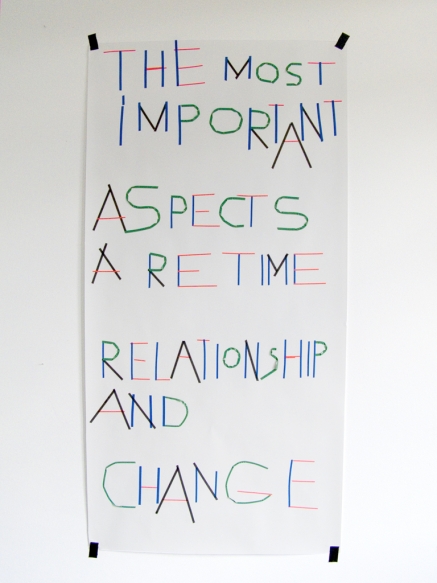 THE MOST
iMPORTANT
ASPECTS
A RE TIME
RELATIONSHIP
AND
CHANGE